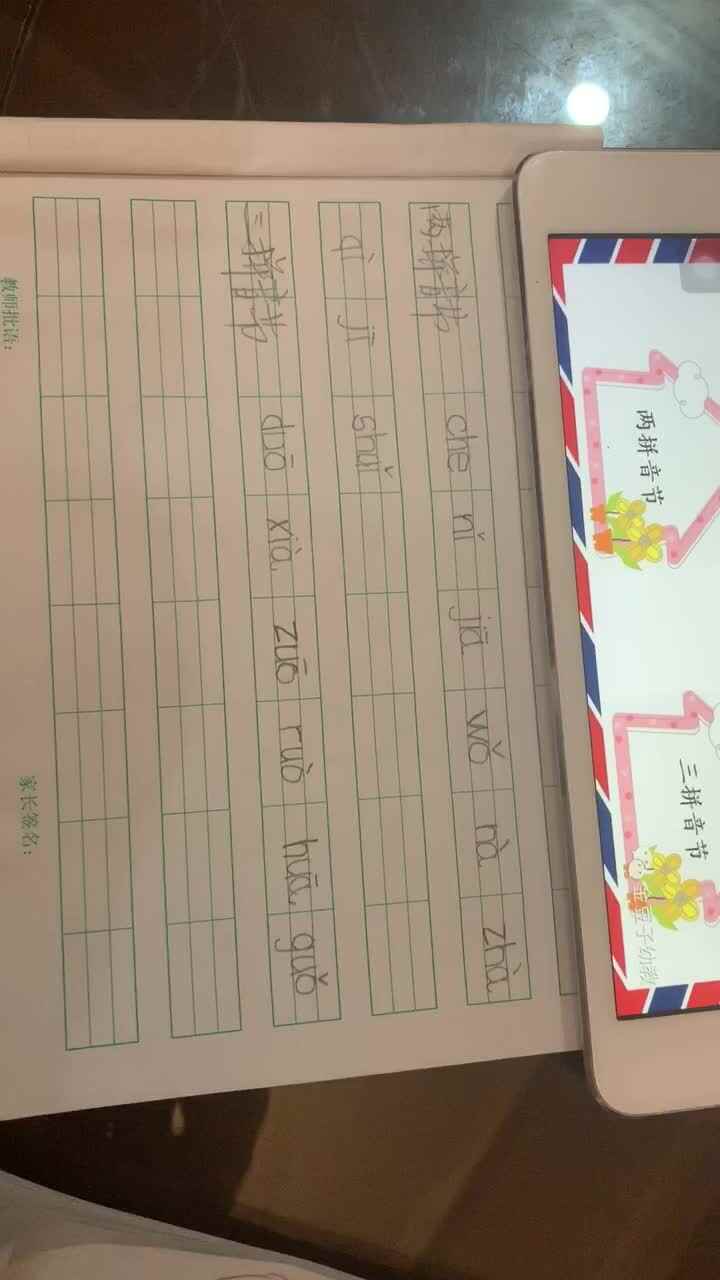 两拼音节 三拼音节
两拼音节 che nǐ jiā wǒ nà zhà
qì jī shuǐ
三拼音节 duō xià zuō ruò huā guǒ
教师批语： 家长签名：